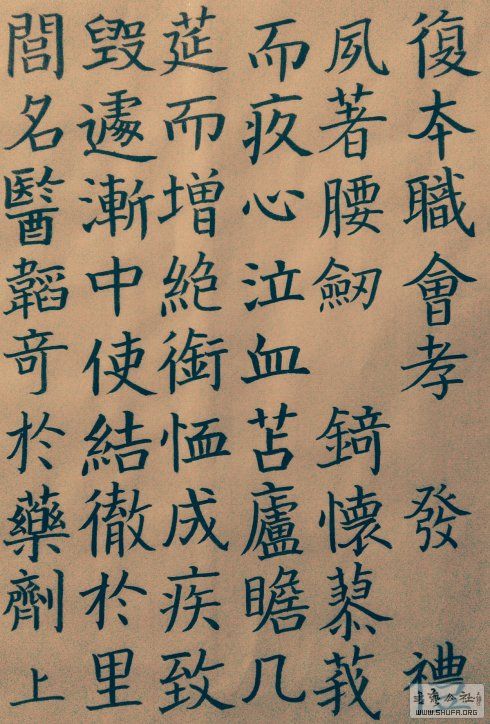 復本職會孝 發 禮
夙著腰劒 錡懷蓼莪
而疚心泣血苫廬瞻几
莚而增絶銜恤成疾致
毀遽漸中使結徹於里
閭名醫韜奇於藥劑上
書藝公社
WWW.SHUFA.ORG